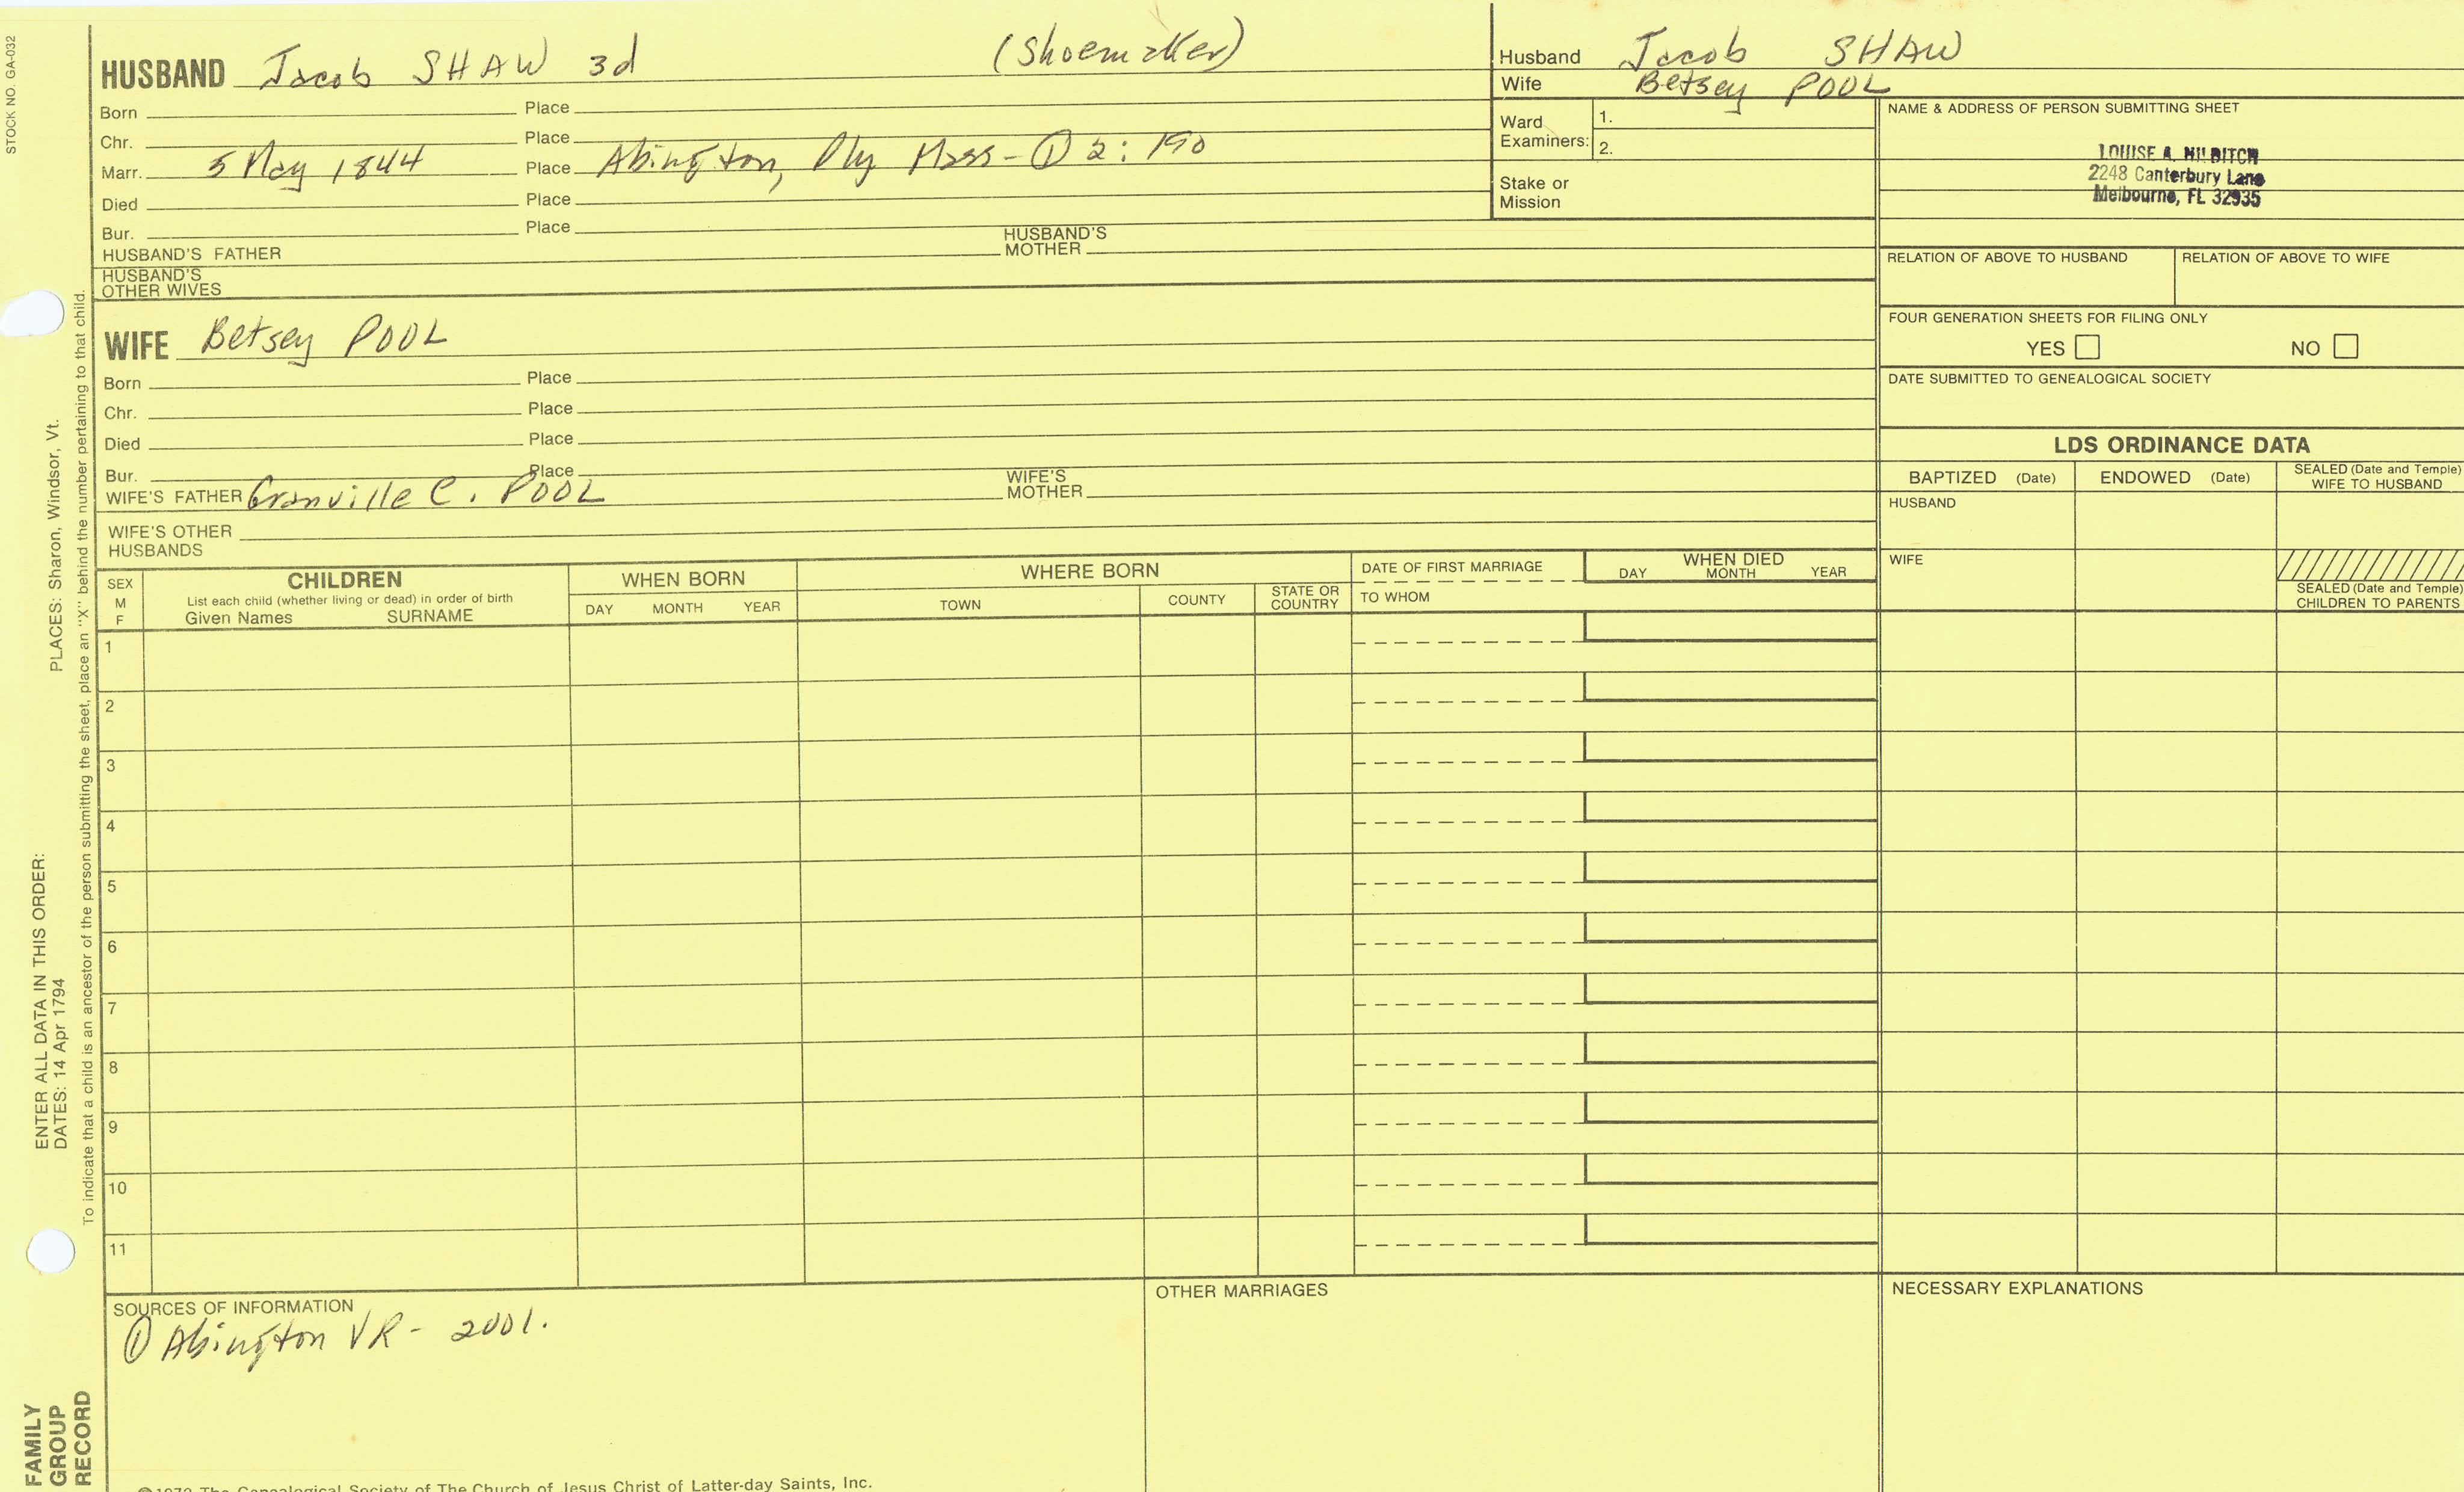 STOCK NO. GA-032
HUSBAND Jacob SHAW 3d (Shoemaker)
Born Place
Chr. Place
Marr. 5 May 1844 Place Abington, Ply Mass - ① 2: 190
Died Place
Bur. Place
HUSBAND'S FATHER HUSBAND'S MOTHER
HUSBAND'S OTHER WIVES
Husband Jacob SHAW
Wife Betsey POOL
Ward Examiners: 1.
2.
Stake or Mission
NAME & ADDRESS OF PERSON SUBMITTING SHEET
LOUISE A.
2248 Canterbury Lane
Melbourne, FL 32935
RELATION OF ABOVE TO HUSBAND RELATION OF ABOVE TO WIFE
FOUR GENERATION SHEETS FOR FILING ONLY
YES NO
DATE SUBMITTED TO GENEALOGICAL SOCIETY
WIFE Betsey POOL
Born Place
Chr. Place
Died Place
Bur. Place
WIFE'S FATHER Granville C. POOL WIFE'S MOTHER
WIFE'S OTHER HUSBANDS
LDS ORDINANCE DATA
BAPTIZED (Date) ENDOWED (Date) SEALED (Date and Temple) WIFE TO HUSBAND
HUSBAND
WIFE
SEALED (Date and Temple) CHILDREN TO PARENTS
SEX M F
CHILDREN
List each child (whether living or dead) in order of birth
Given Names SURNAME
WHEN BORN
DAY MONTH YEAR
WHERE BORN
TOWN COUNTY STATE OR COUNTRY
DATE OF FIRST MARRIAGE
TO WHOM
WHEN DIED
DAY MONTH YEAR
1
2
3
4
5
6
7
8
9
10
11
SOURCES OF INFORMATION
① Abington VR - 2001.
OTHER MARRIAGES
NECESSARY EXPLANATIONS
The Genealogical Society of The Church of Jesus Christ of Latter-day Saints, Inc.
PLACES: Sharon, Windsor, Vt.
ENTER ALL DATA IN THIS ORDER:
DATES: 14 Apr 1794
To indicate that a child is an ancestor of the person submitting the sheet, place an "X" behind the number pertaining to that child.
FAMILY
GROUP
RECORD